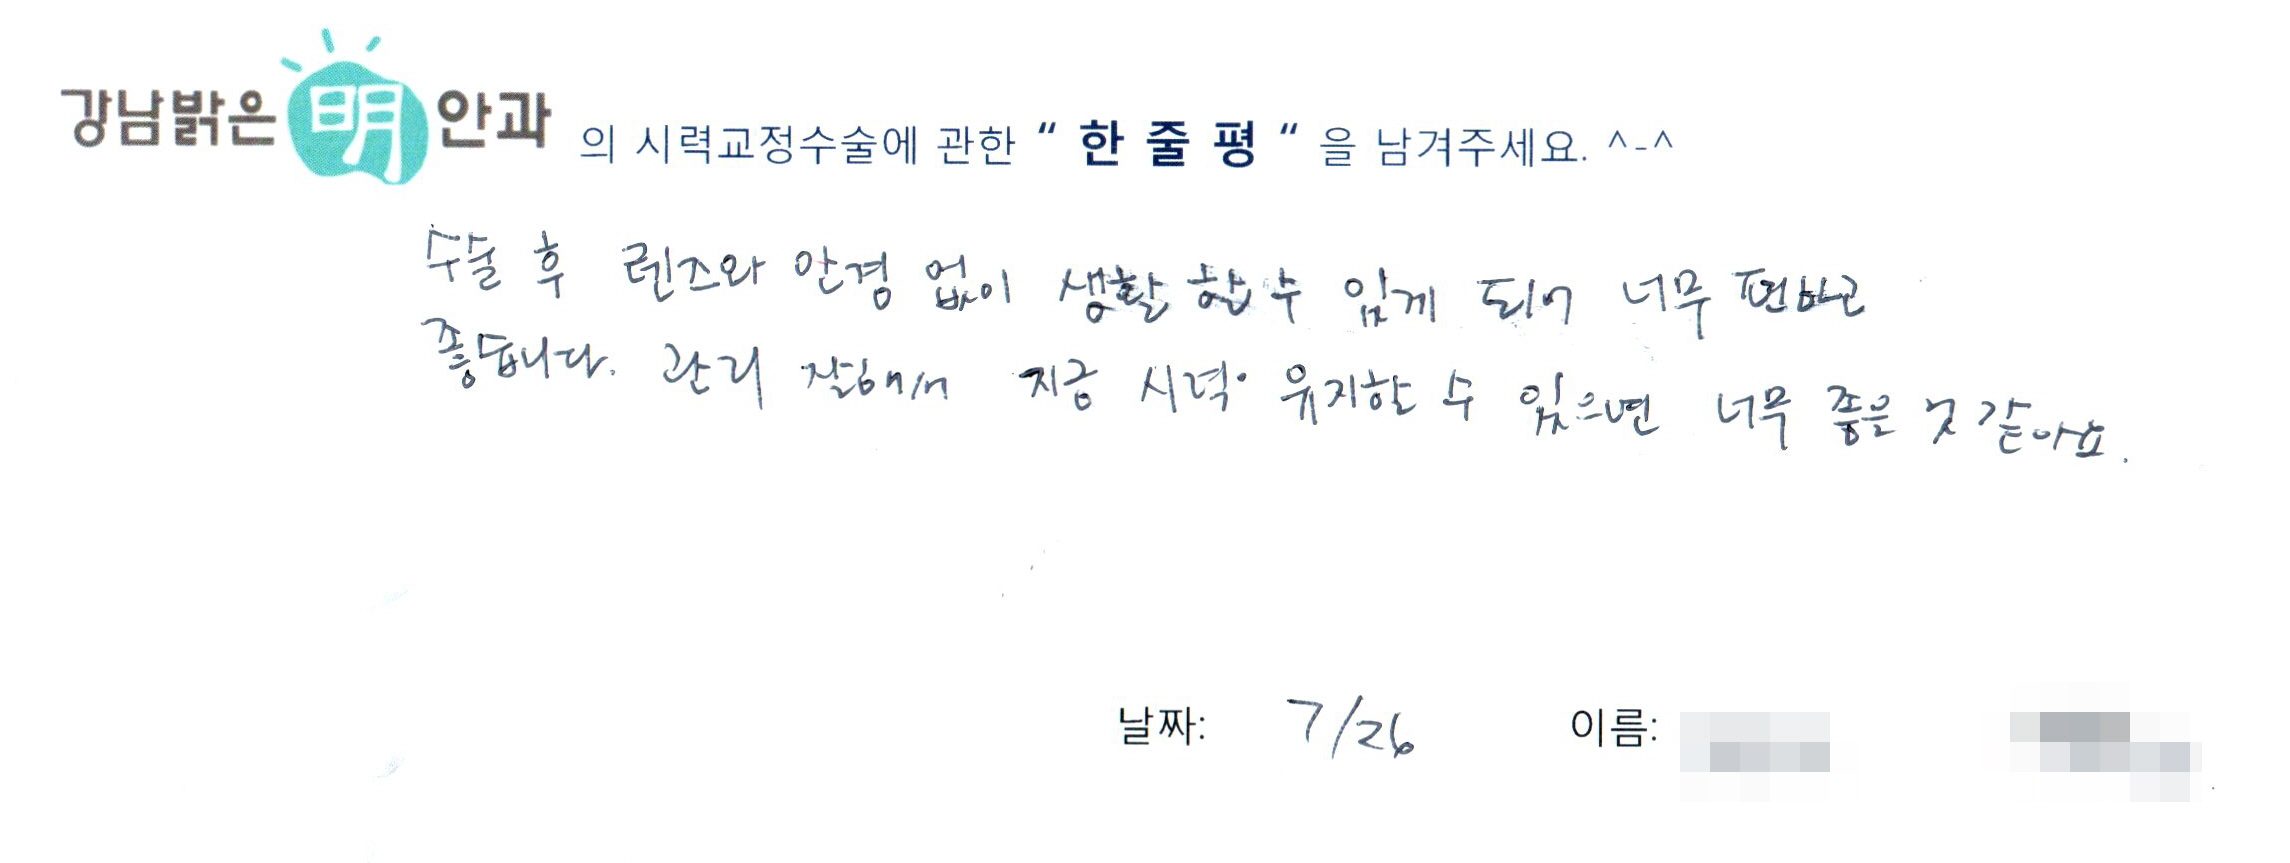 강남밝은 明 안과 의 시력교정수술에 관한 “ 한 줄 평 “ 을 남겨주세요. ^-^
수술 후 렌즈와 안경 없이 생활 할 수 있게 되어 너무 편하고
좋습니다. 관리 잘해서 지금 시력 유지할 수 있으면 너무 좋을 것 같아요.
날짜: 7/26 이름: